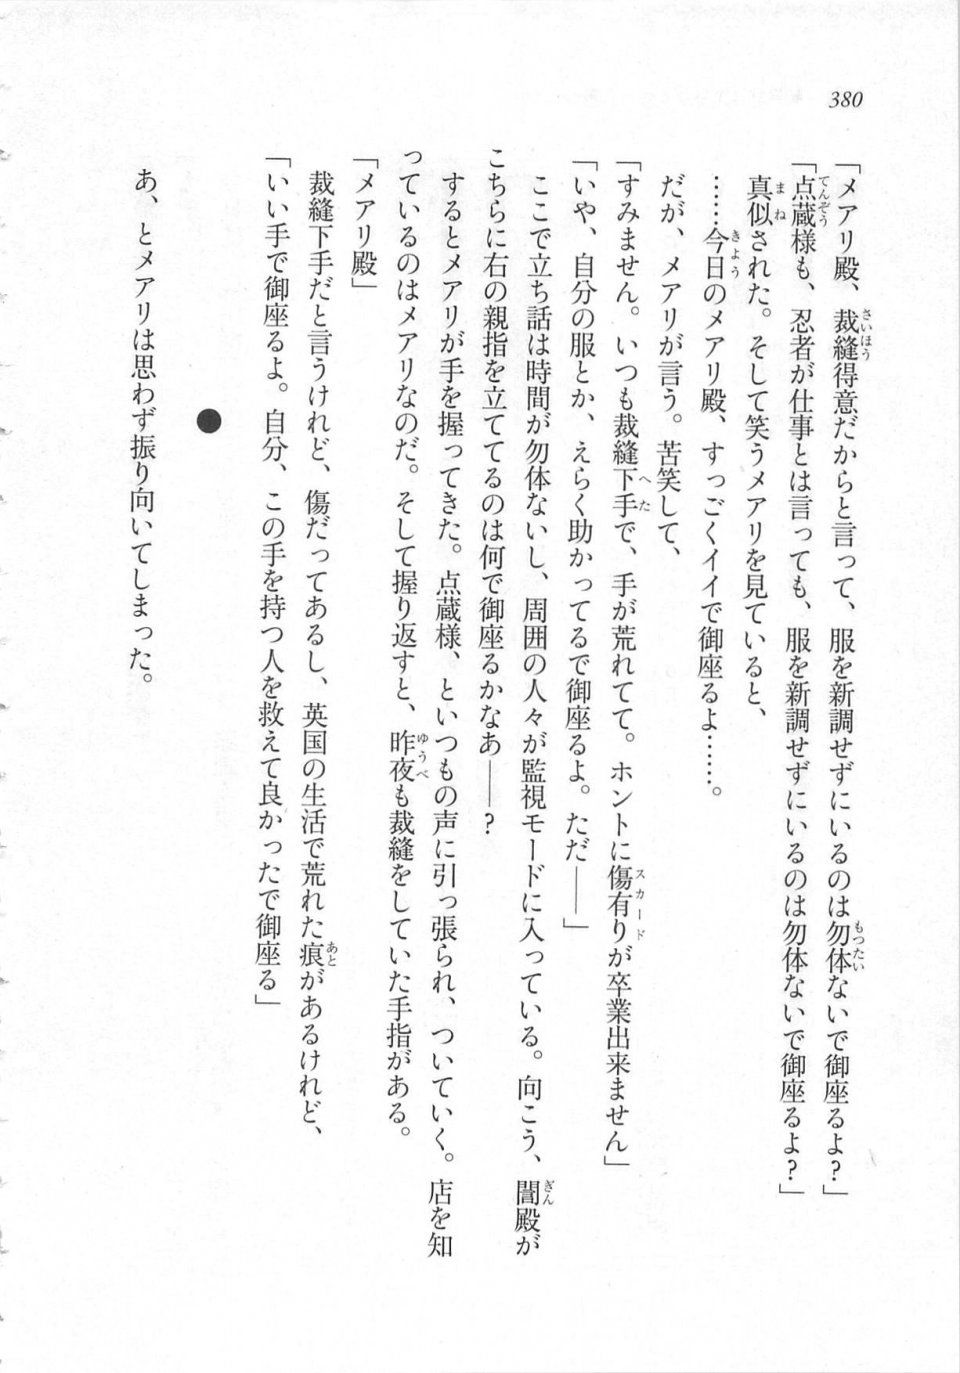 380
「メアリ殿、裁縫得意だからと言って、服を新調せずにいるのは勿体ないで御座るよ?」
「点蔵様も、忍者が仕事とは言っても、服を新調せずにいるのは勿体ないで御座るよ?」
真似された。そして笑うメアリを見ていると、
……今日のメアリ殿、すっごくイイで御座るよ……。
だが、メアリが言う。苦笑して、
「すみません。いつも裁縫下手で、手が荒れてて。ホントに傷有りが卒業出来ません」
「いや、自分の服とか、えらく助かってるで御座るよ。ただ――」
ここで立ち話は時間が勿体ないし、周囲の人々が監視モードに入っている。向こう、誾殿が
こちらに右の親指を立ててるのは何で御座るかなあ――?
するとメアリが手を握ってきた。点蔵様、といつもの声に引っ張られ、ついていく。店を知
っているのはメアリなのだ。そして握り返すと、昨夜も裁縫をしていた手指がある。
「メアリ殿」
裁縫下手だと言うけれど、傷だってあるし、英国の生活で荒れた痕があるけれど、
「いい手で御座るよ。自分、この手を持つ人を救えて良かったで御座る」
●
あ、とメアリは思わず振り向いてしまった。